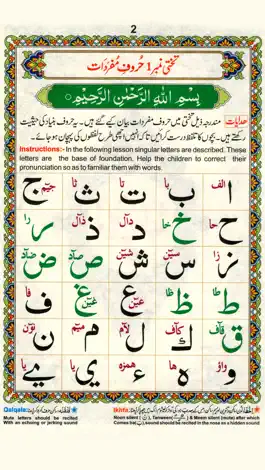 2
تختی نمبر 1 حُروفِ مُفرَدَات
بِسْمِ اللهِ الرَّحْمٰنِ الرَّحِيْمِ
ھدایات:- مندرجہ ذیل تختی میں حروف مفردات بیان کیے گئے ہیں۔ یہ حروف بنیاد کی حیثیت
رکھتے ہیں۔ بچوں کا تلفظ درست کرائیں تاکہ انہیں اچھی طرح لفظوں کی پہچان ہو جائے۔
Instructions:- In the following lesson singular letters are described. These
letters are the base of foundation. Help the children to correct their
pronunciation so as to familiar them with words.
الف با تا ثا جيم
ا ب ت ث ج
حا خا دال ذال را
ح خ د ذ ر
زا سين شين صاد ضاد
ز س ش ص ض
طا ظا عين غين فا
ط ظ ع غ ف
قاف كاف لام ميم نون
ق ك ل م ن
واؤ ها همزه يا يا
و ه ء ي ے
Qalqala:
Mute letters should be recited
With an echoing or jerking sound
Ikhfa:
Noon silent ( نْ ), Tanween( ) & Meem silent (mute) after which
Comes ba( ب ),sound should be recited in the nose as a hidden sound